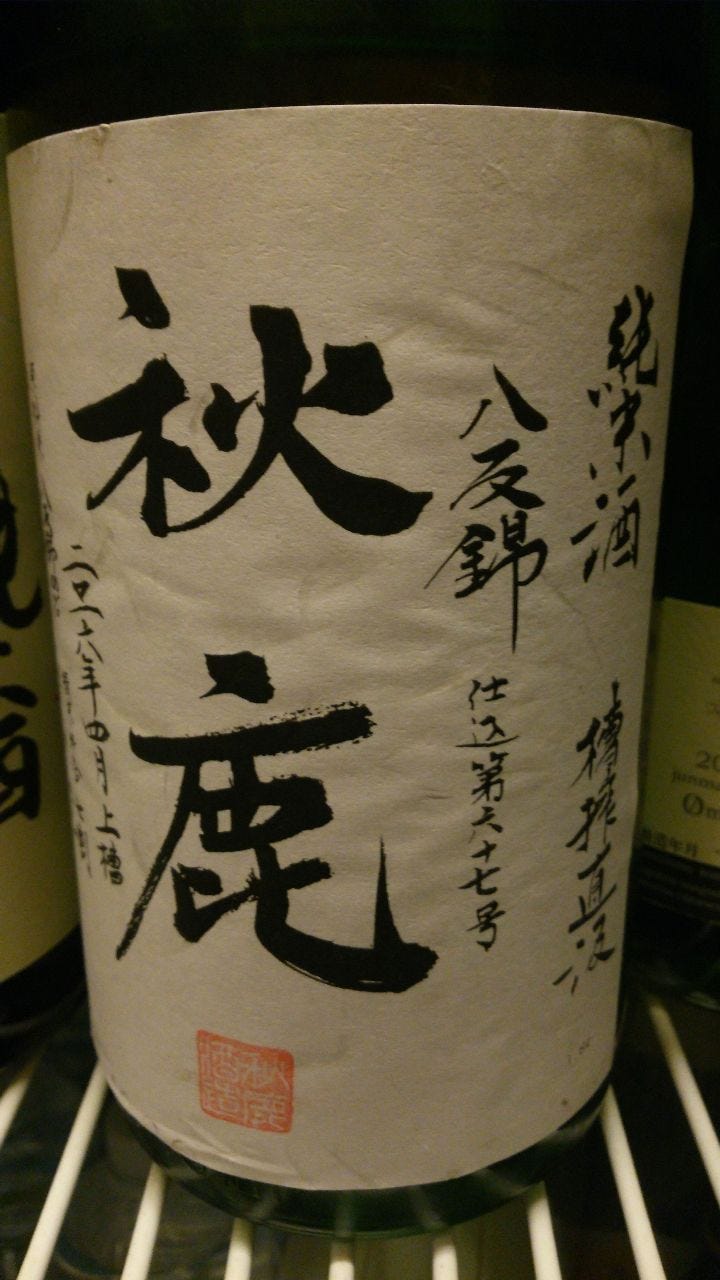 純米酒 槽搾直汲
八反錦 仕込第六十七号
秋鹿
二〇一六年四月上槽
秋鹿酒造
20
junma